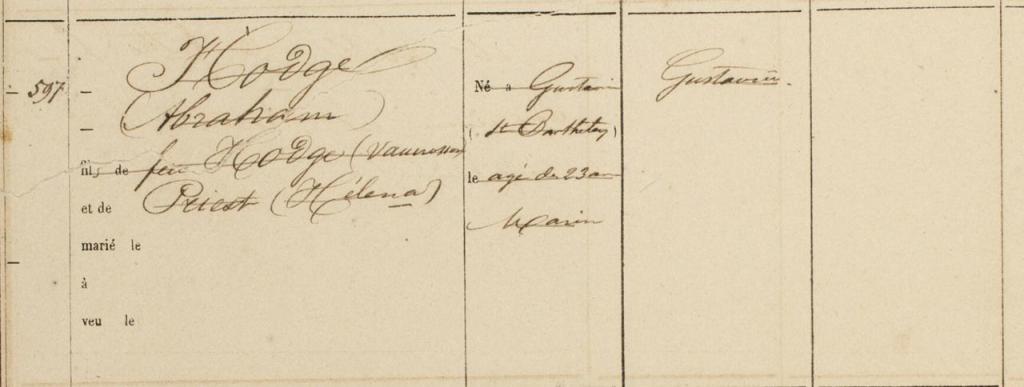 597
Hodge
(Abraham)
fils de feu Hodge (Vaucrosson
et de Priest (Hélena)
marié le
à
veu le
Né à Gustavi
(St Barthélemy)
le agé de 23 an
Marin
Gustavia.